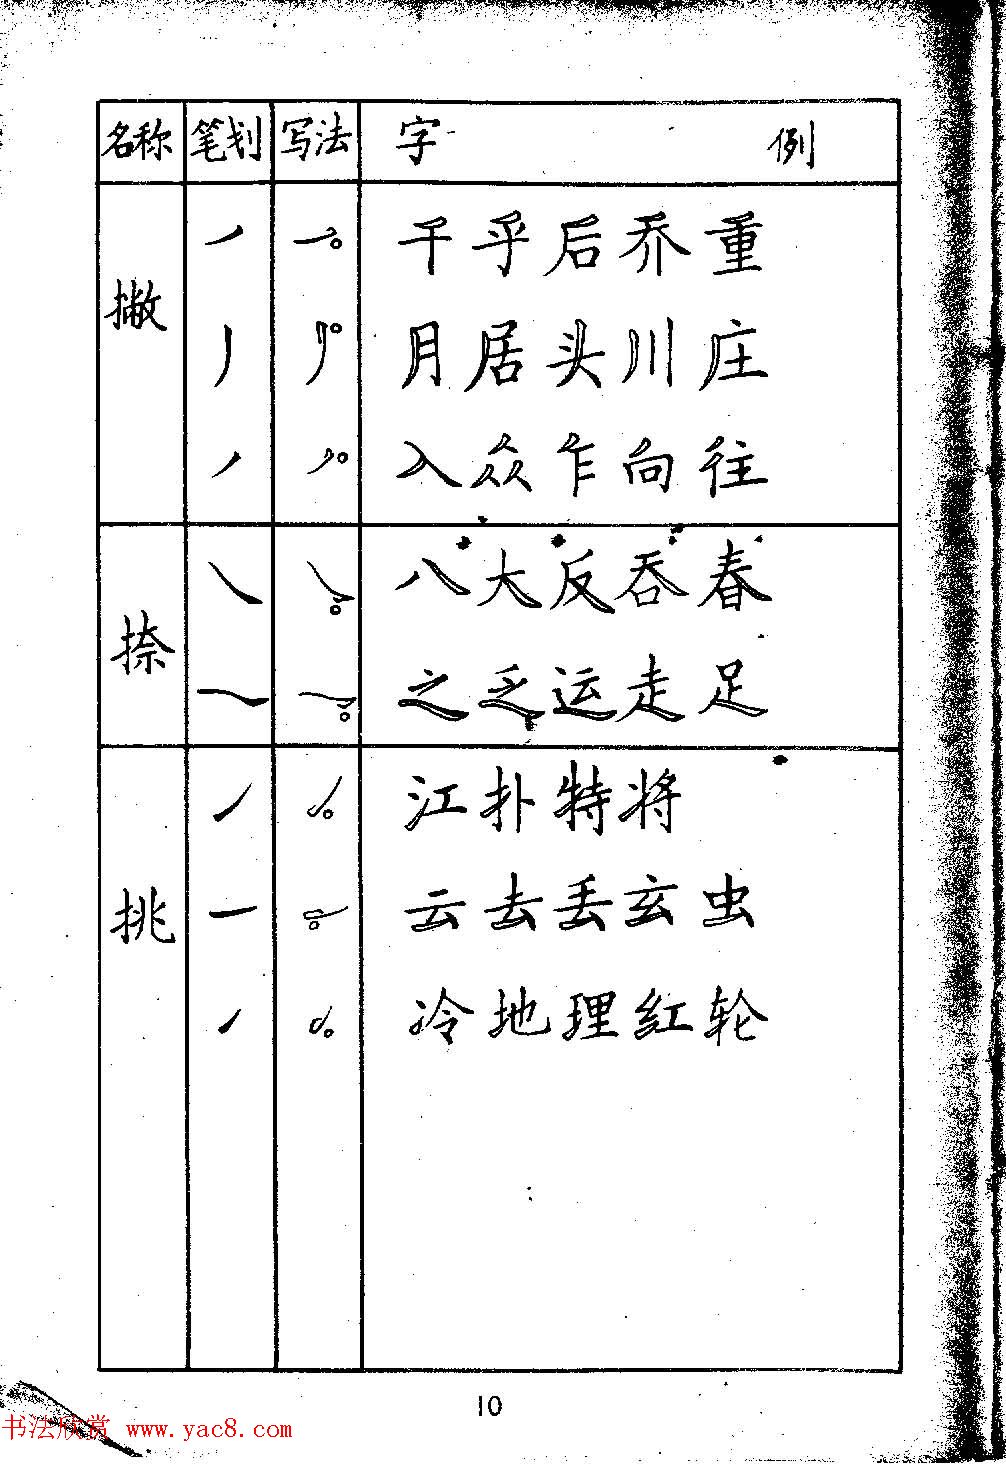 名称 笔划 写法 字 例
撇
千 乎 后 乔 重
月 居 头 川 庄
入 众 乍 向 往
捺
八 大 反 吞 春
之 乏 运 走 足
挑
江 扑 特 将
云 去 丢 玄 虫
冷 地 理 红 轮
10
书法欣赏 www.yac8.com